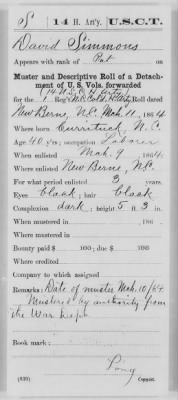 S | 14 H. Art'y. | U.S.C.T.
David Simmons
Appears with rank of Pvt on
Muster and Descriptive Roll of a Detachment
of U. S. Vols. forwarded
(14 U.S.C.H. Arty)
for the 1 Reg't N.C. Cold. H. Arty Roll dated
New Berne, N.C. Mch. 11, 1864.
Where born Currituck, N.C.
Age 40 y'rs; occupation Laborer
When enlisted Mch. 9, 1864.
Where enlisted New Berne, N.C.
For what period enlisted 3 years.
Eyes black; hair black
Complexion dark; height 5 ft. 3 in.
When mustered in , 186 .
Where mustered in
Bounty paid $ 100; due $ 100
Where credited
Company to which assigned
Remarks: Date of muster Mch. 10/64.
Mustered by authority from
the War Dept.
Book mark:
(639) Copyist.